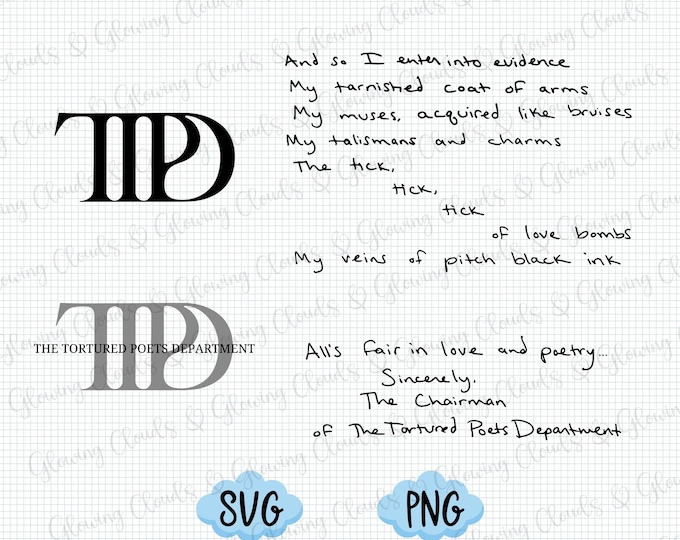 And so I enter into evidence
My tarnished coat of arms
My muses, acquired like bruises
My talismans and charms
The tick,
tick,
tick
of love bombs
My veins of pitch black ink
TTPD
TTPD
THE TORTURED POETS DEPARTMENT
All's fair in love and poetry...
Sincerely,
The Chairman
of The Tortured Poets Department
SVG
PNG
Glowing Clouds & Glowing Clouds &